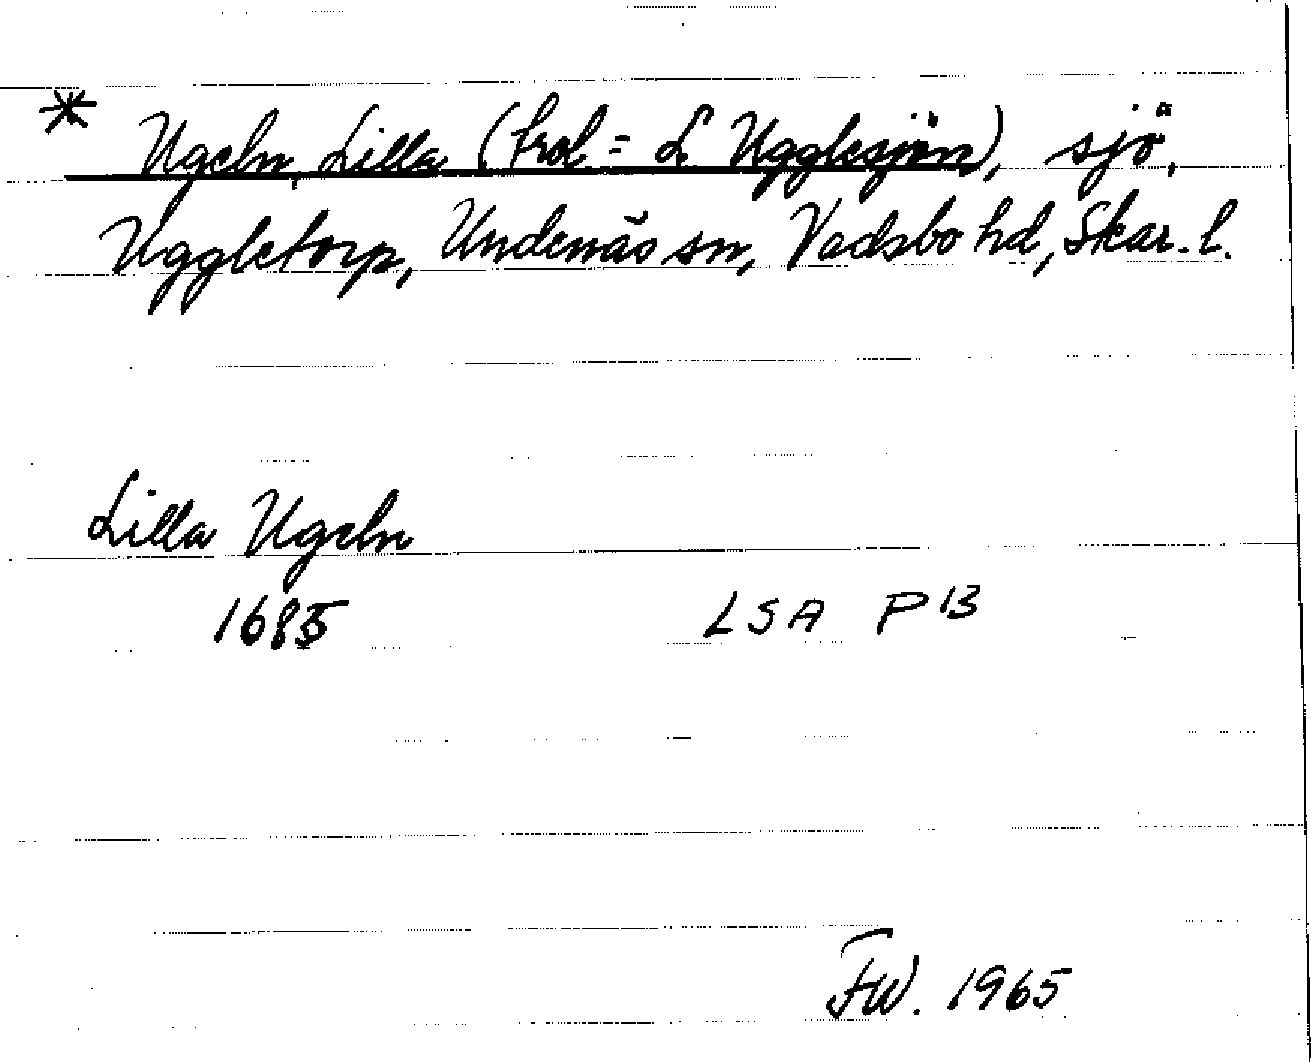 * Ugeln, Lilla (trol = L Ugglesjön), sjö,
Uggletorp, Undenäs sn, Vadsbo hd, Skar. l.
Lilla Ugeln
1685 LSA P 13
FW. 1965